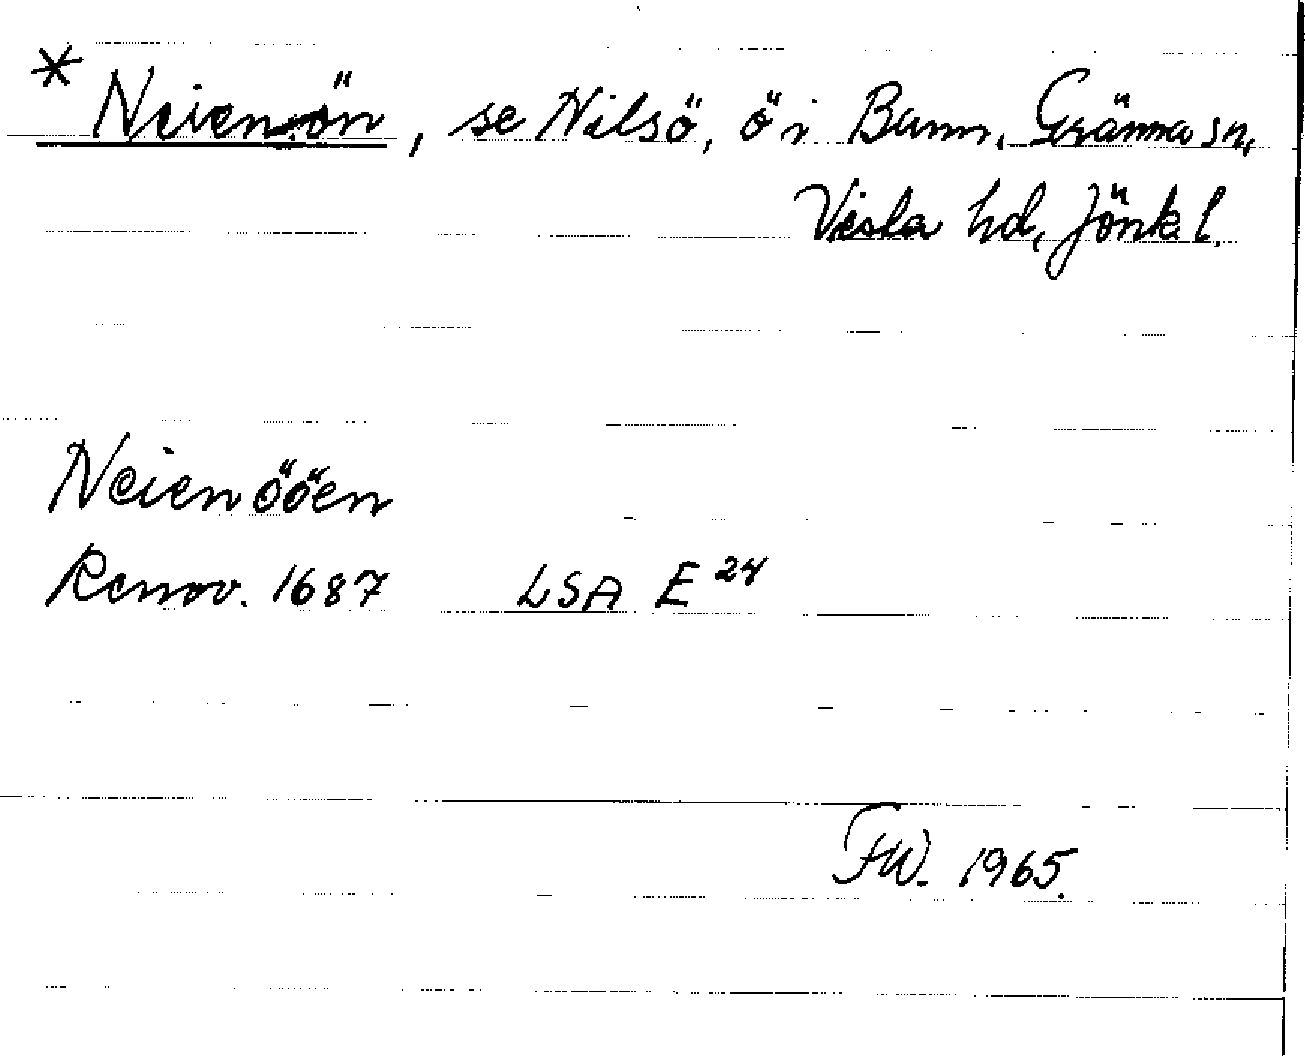 * Neienön, se Nilsö, ö i Bunn, Gränna sn,
Vista hd, Jönk l.
Neienööen
Renov. 1687 LSA E 24
FW. 1965.